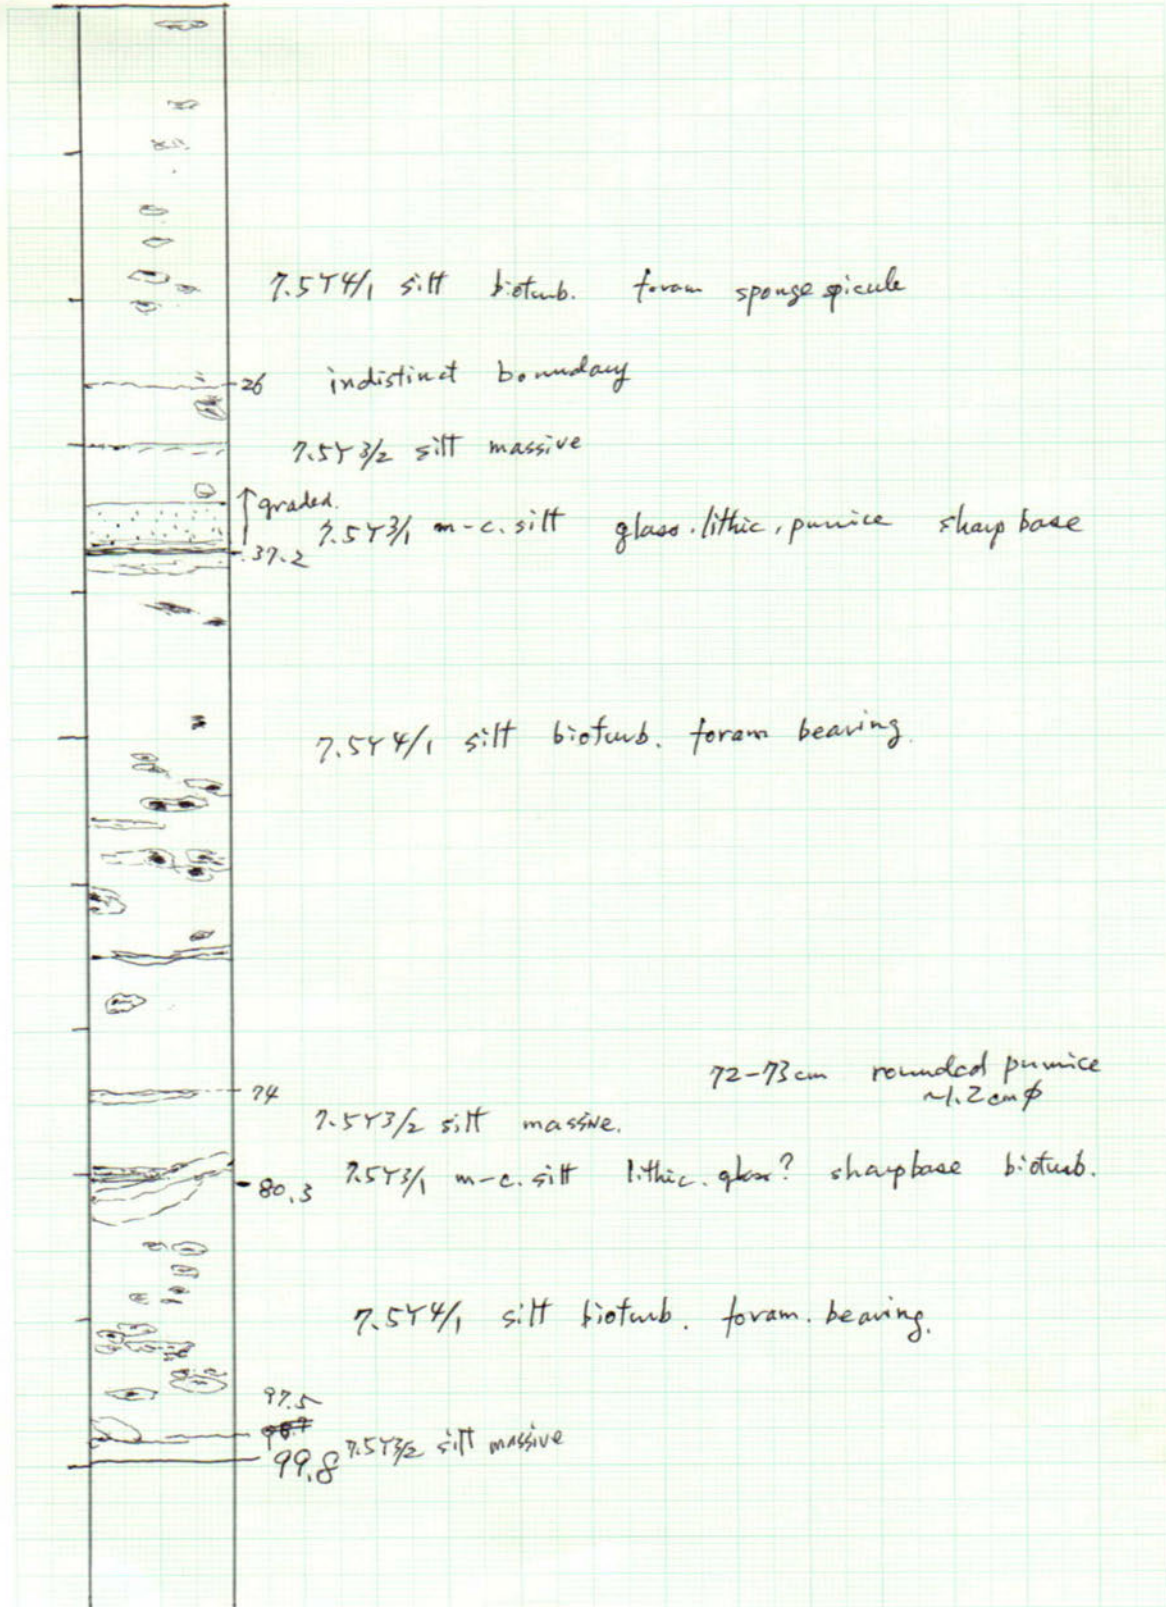 7.5Y4/1 silt bioturb. foram sponge spicule
26 indistinct boundary
7.5Y3/2 silt massive
graded.
7.5Y3/1 m-c. silt glass. lithic, pumice sharp base
37.2
7.5Y4/1 silt bioturb. foram bearing.
72-73cm rounded pumice
~1.2cmφ
74
7.5Y3/2 silt massive.
80.3 7.5Y3/1 m-c. silt lithic. glass? sharpbase bioturb.
7.5Y4/1 silt bioturb. foram. bearing.
97.5
99.8 7.5Y3/2 silt massive